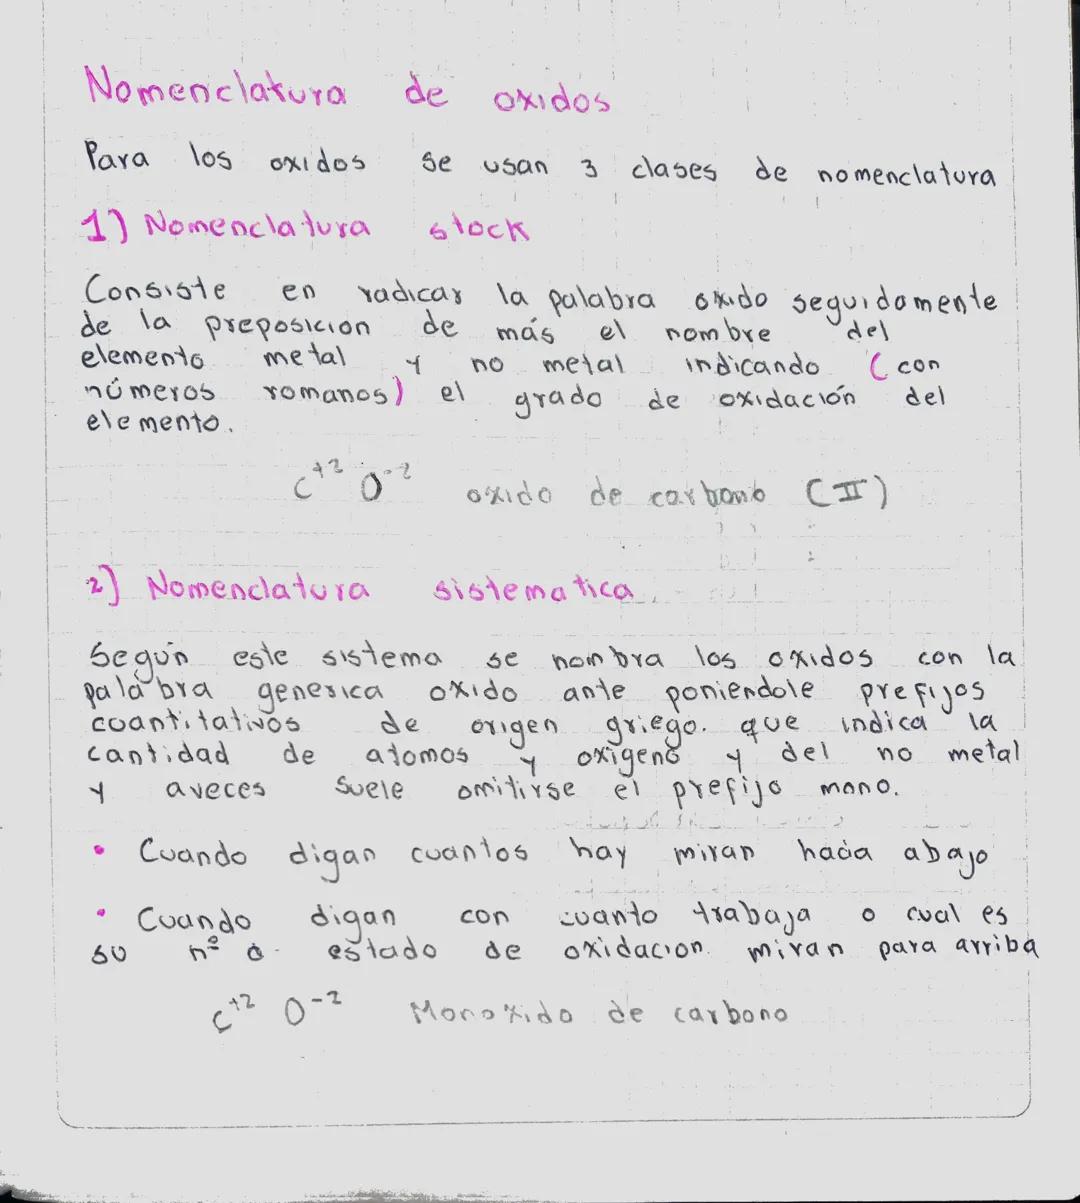 Nomenclatura de oxidos
Para los oxidos se usan 3 clases de nomenclatura
1) Nomenclatura stock
Consiste en radicar la palabra oxido seguidamente
de la preposicion de más el nombre del
elemento metal y no metal indicando (con
números romanos) el grado de oxidación del
elemento.
C⁺² O⁻² oxido de carbono (II)
2) Nomenclatura sistematica
Según este sistema se nombra los oxidos con la
palabra generica oxido ante poniendole prefijos
cuantitativos de origen griego. que indica la
cantidad de atomos y oxigeno y del no metal
y aveces suele omitirse el prefijo mono.
• Cuando digan cuantos hay miran hacia abajo
• Cuando digan con cuanto trabaja o cual es
su nº o estado de oxidacion miran para arriba
C⁺² O⁻² Monoxido de carbono